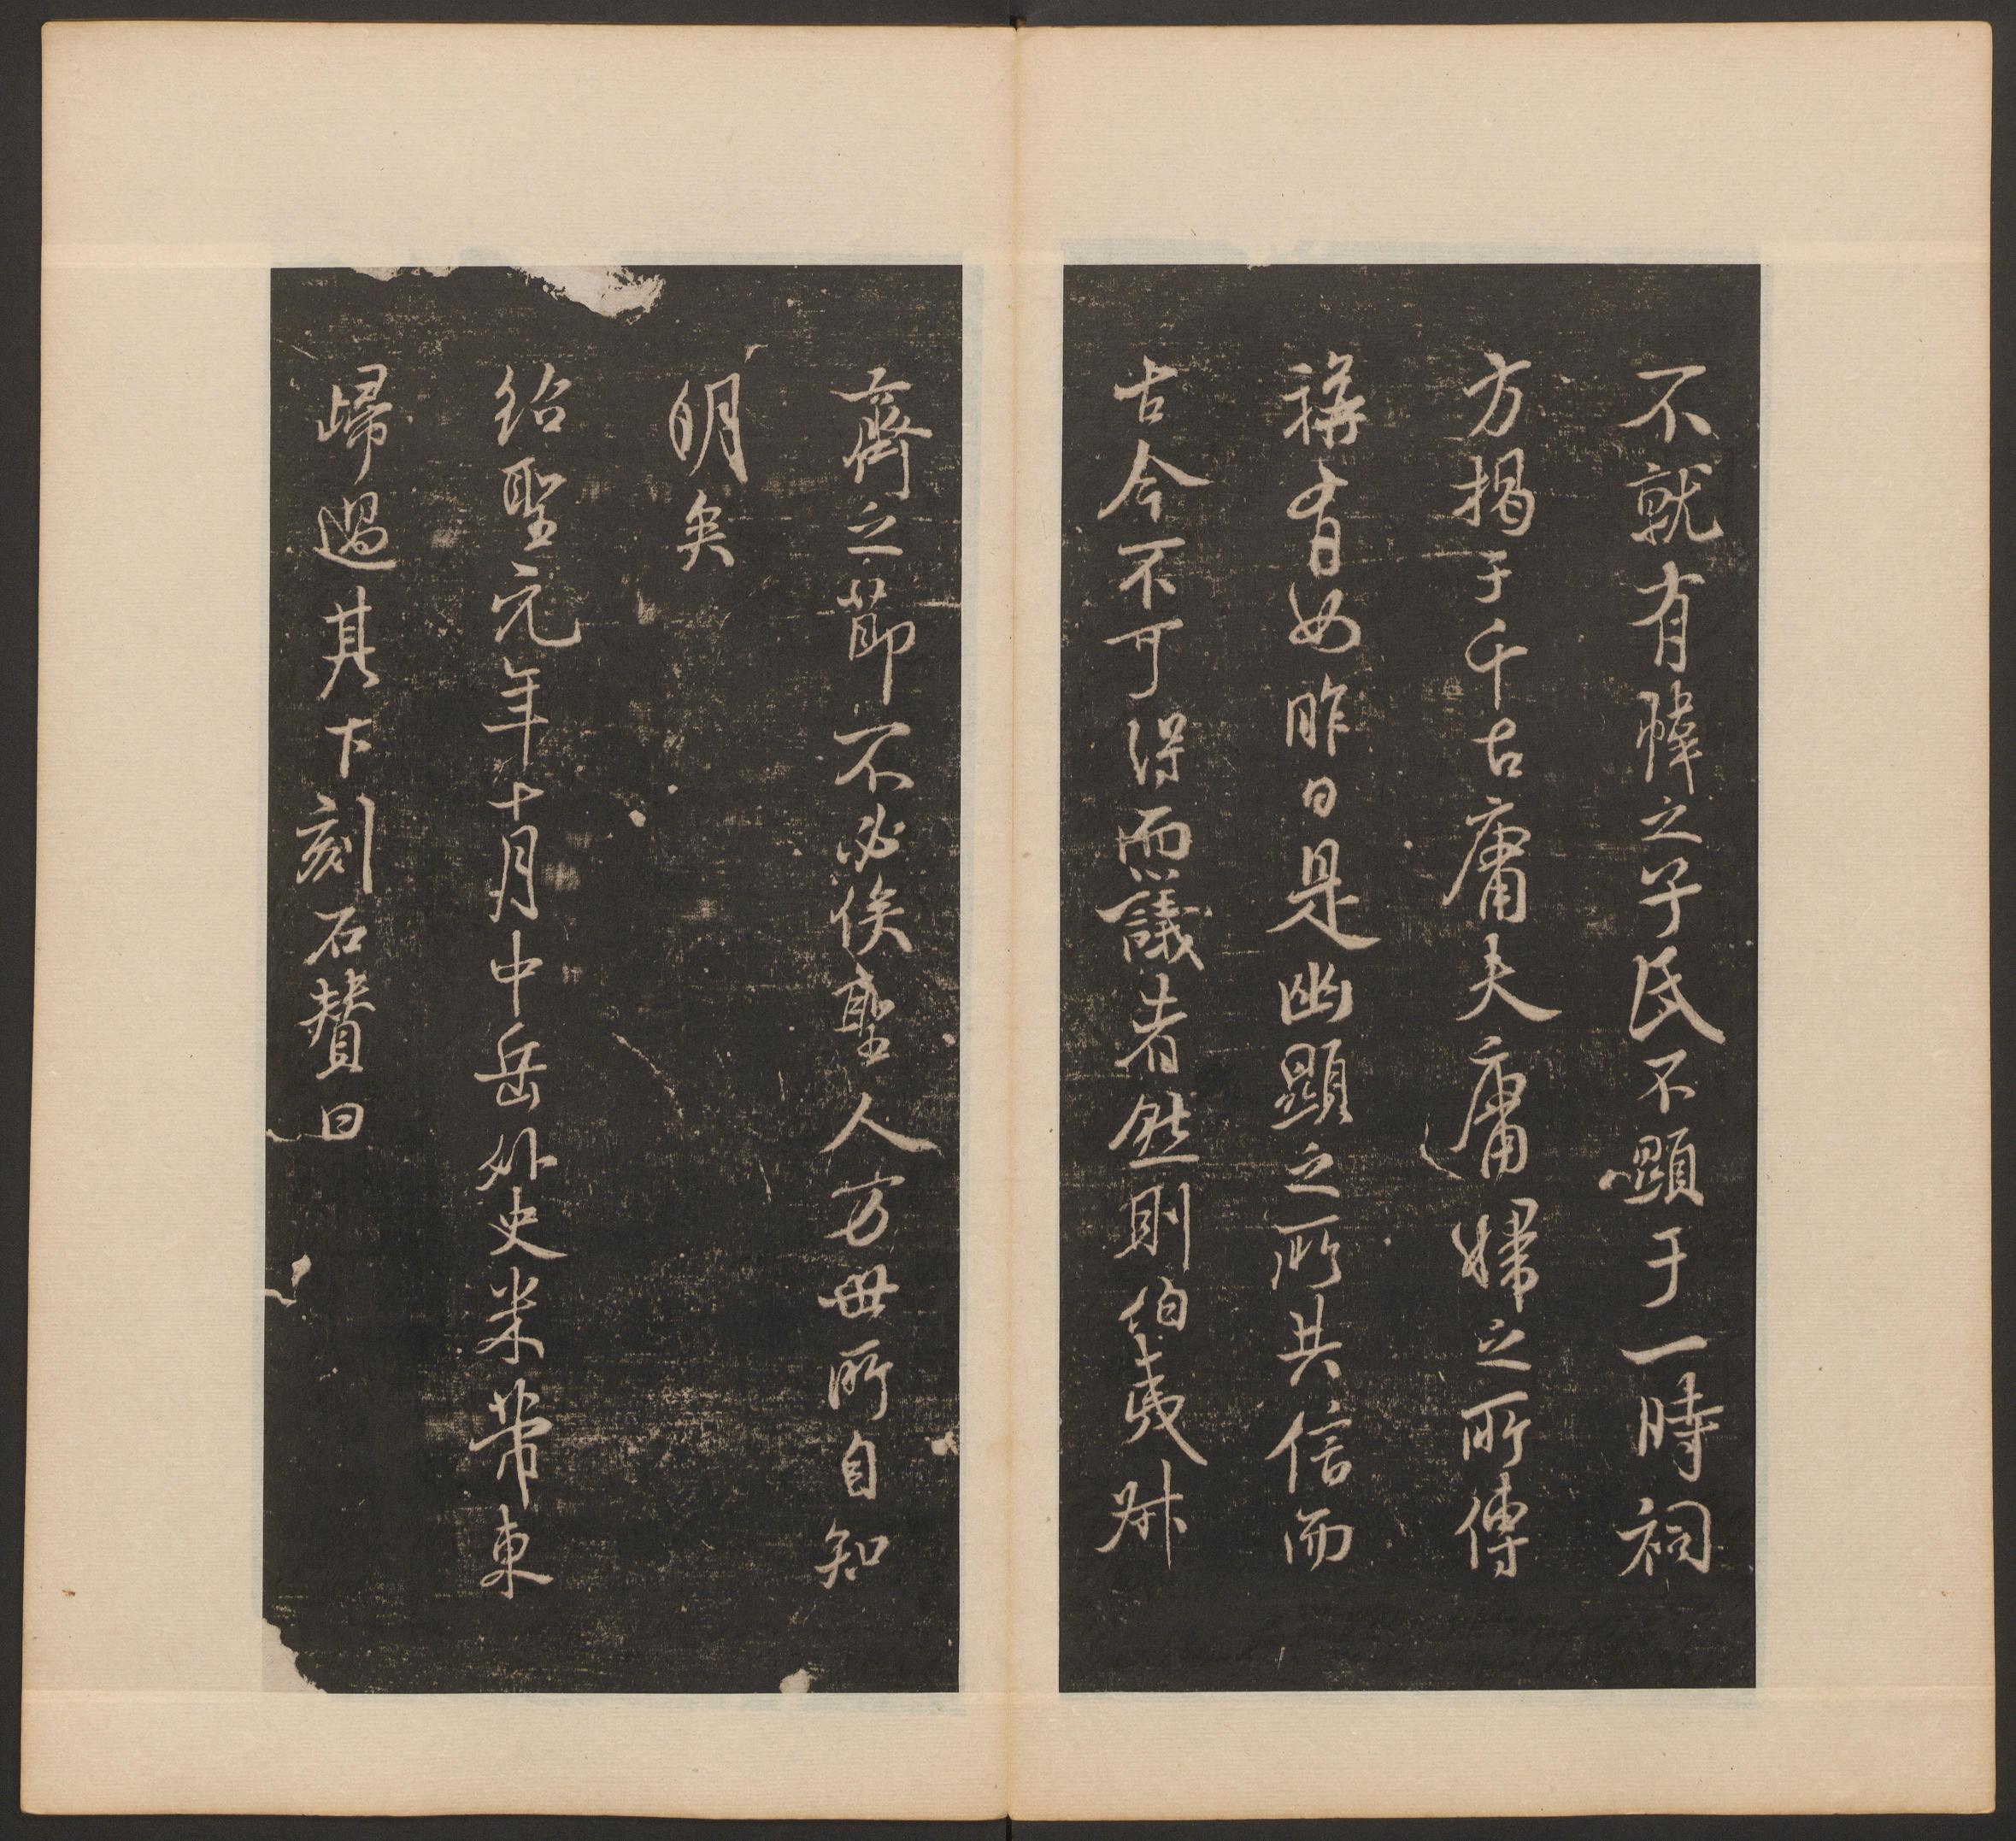 不就有暐之子氏不顯于一時祠
方揭于千古庸夫庸婦之所傳
稱昏如昨日是幽顯之所共信而
古今不可得而議者然則伯夷叔
齊之節不必俟聖人方毋所自知
明矣
紹聖元年十月中岳外史米芾東
歸過其下刻石贊曰